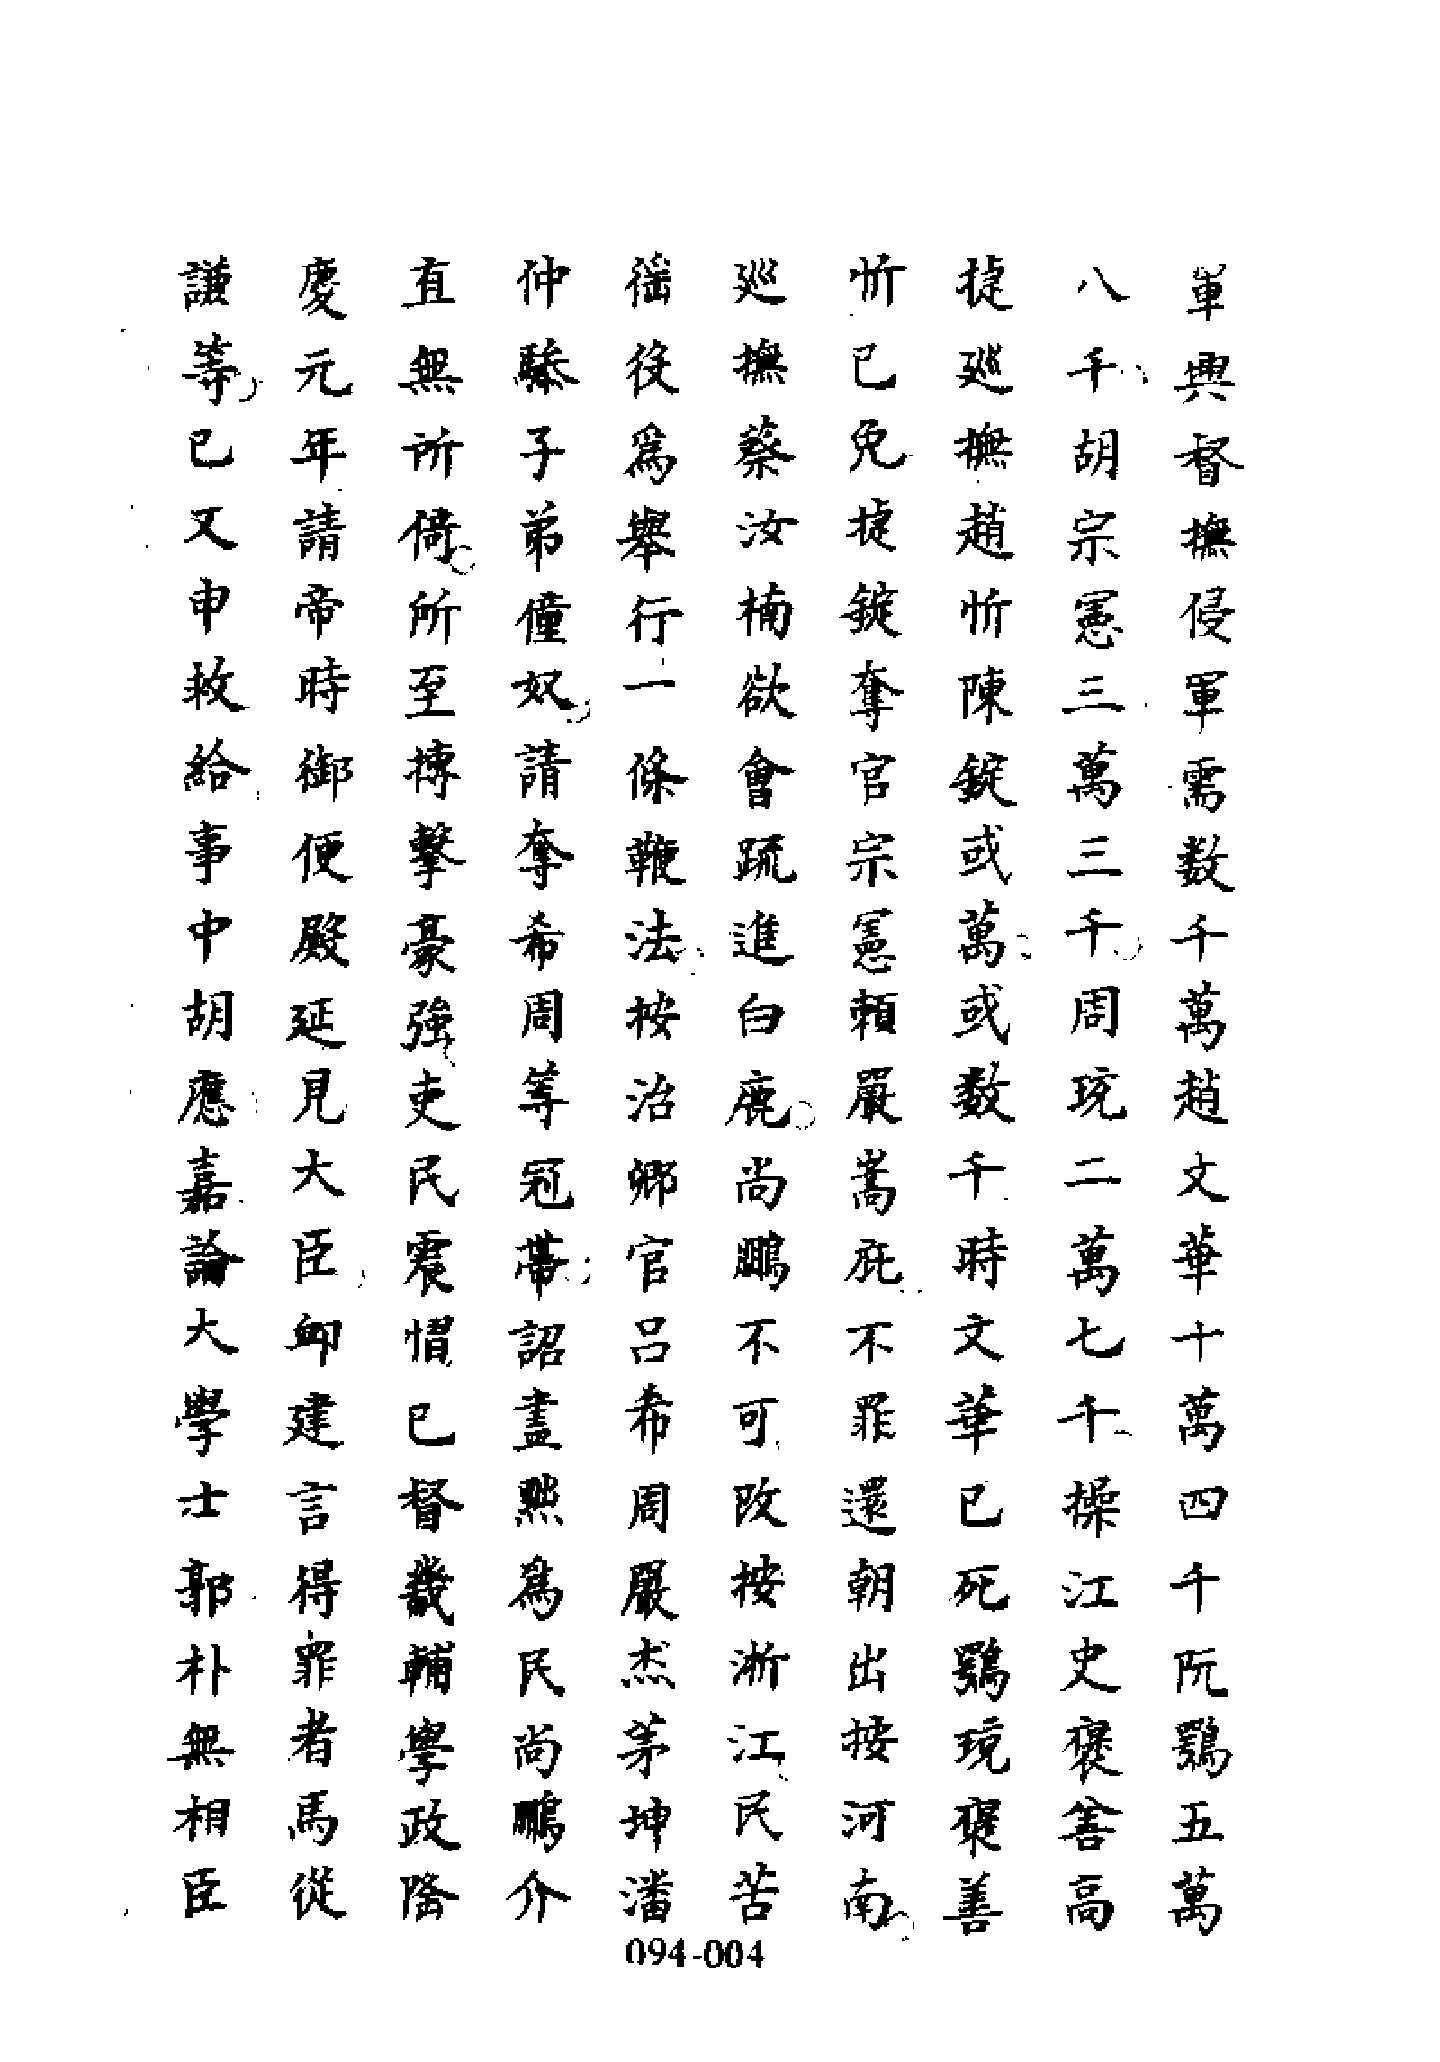 軍興督撫侵軍需数千萬趙文華十萬四千阮鶚五萬
八千胡宗憲三萬三千周珫二萬七千操江史褒善高
捷廵撫趙忻陳錠或萬或数千時文華已死鶚珫褒善
忻已免捷錠奪官宗憲頼嚴嵩庇不罪還朝出按河南
廵撫蔡汝楠欲會䟽進白鹿尚鵬不可改按淅江民苦
徭役爲舉行一條鞭法按治鄉官吕希周嚴杰茅坤潘
仲驂子弟僮奴請奪希周等冠帶詔盡黙爲民尚鵬介
直無所倚所至搏擊豪強吏民震慴已督畿輔學政隆
慶元年請帝時御便殿延見大臣䘏建言得罪者馬從
謙等已又申救給事中胡應嘉論大學士郭朴無相臣
094-004